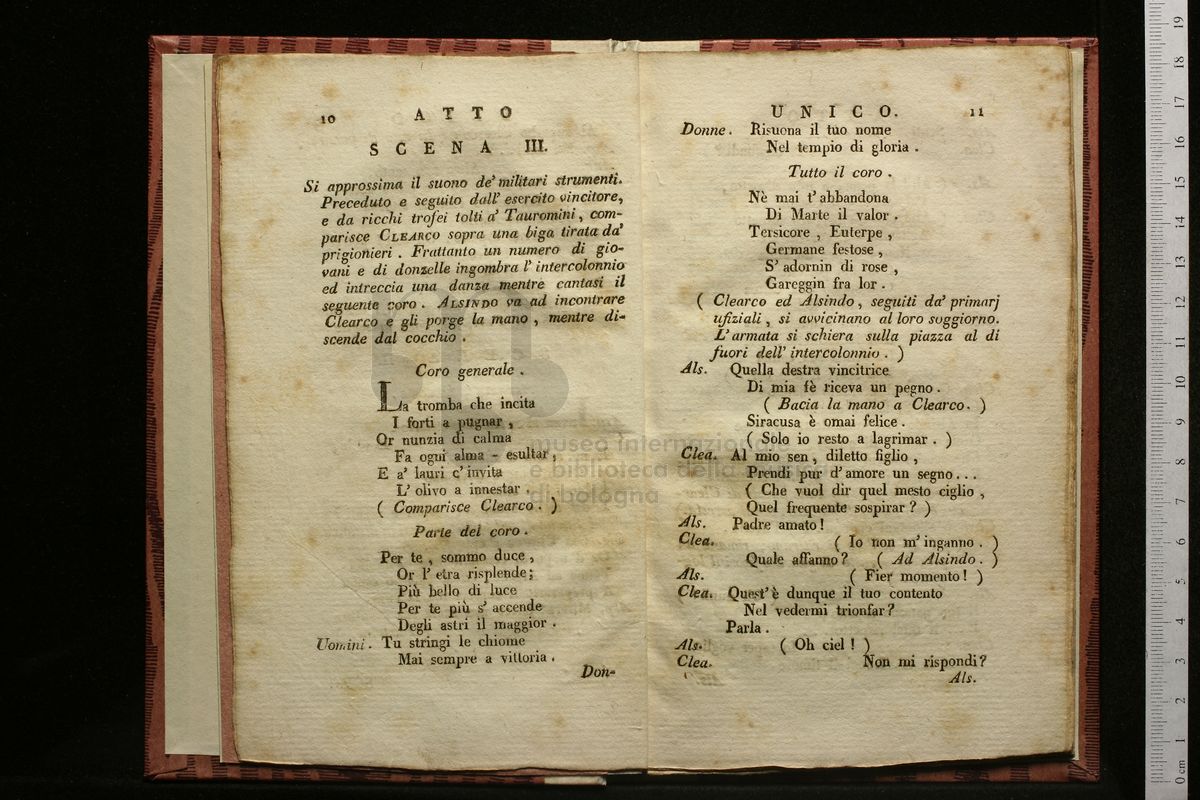 10 ATTO
SCENA III.
Si approssima il suono de' militari strumenti.
Preceduto e seguito dall' esercito vincitore,
e da ricchi trofei tolti a' Tauromini, com-
parisce CLEARCO sopra una biga tirata da'
prigionieri. Frattanto un numero di gio-
vani e di donzelle ingombra l' intercolonnio
ed intreccia una danza mentre cantasi il
seguente coro. ALSINDO va ad incontrare
Clearco e gli porge la mano, mentre di-
scende dal cocchio.
Coro generale.
La tromba che incita
I forti a pugnar,
Or nunzia di calma
Fa ogni alma - esultar,
E a' lauri c' invita
L' olivo a innestar.
( Comparisce Clearco. )
Parte del coro.
Per te, sommo duce,
Or l' etra risplende;
Più bello di luce
Per te più s' accende
Degli astri il maggior.
Uomini. Tu stringi le chiome
Mai sempre a vittoria.
Don-
UNICO. 11
Donne. Risuona il tuo nome
Nel tempio di gloria.
Tutto il coro.
Nè mai t' abbandona
Di Marte il valor.
Tersicore, Euterpe,
Germane festose,
S' adornin di rose,
Gareggin fra lor.
( Clearco ed Alsindo, seguiti da' primarj
ufiziali, si avvicinano al loro soggiorno.
L' armata si schiera sulla piazza al di
fuori dell' intercolonnio. )
Als. Quella destra vincitrice
Di mia fè riceva un pegno.
( Bacia la mano a Clearco. )
Siracusa è omai felice.
( Solo io resto a lagrimar. )
Clea. Al mio sen, diletto figlio,
Prendi pur d' amore un segno...
( Che vuol dir quel mesto ciglio,
Quel frequente sospirar? )
Als. Padre amato!
Clea. ( Io non m' inganno. )
Quale affanno? ( Ad Alsindo. )
Als. ( Fier momento! )
Clea. Quest' è dunque il tuo contento
Nel vedermi trionfar?
Parla.
Als. ( Oh ciel! )
Clea. Non mi rispondi?
Als.
museo internazionale
e biblioteca della musica
di bologna
0 cm 1 2 3 4 5 6 7 8 9 10 11 12 13 14 15 16 17 18 19